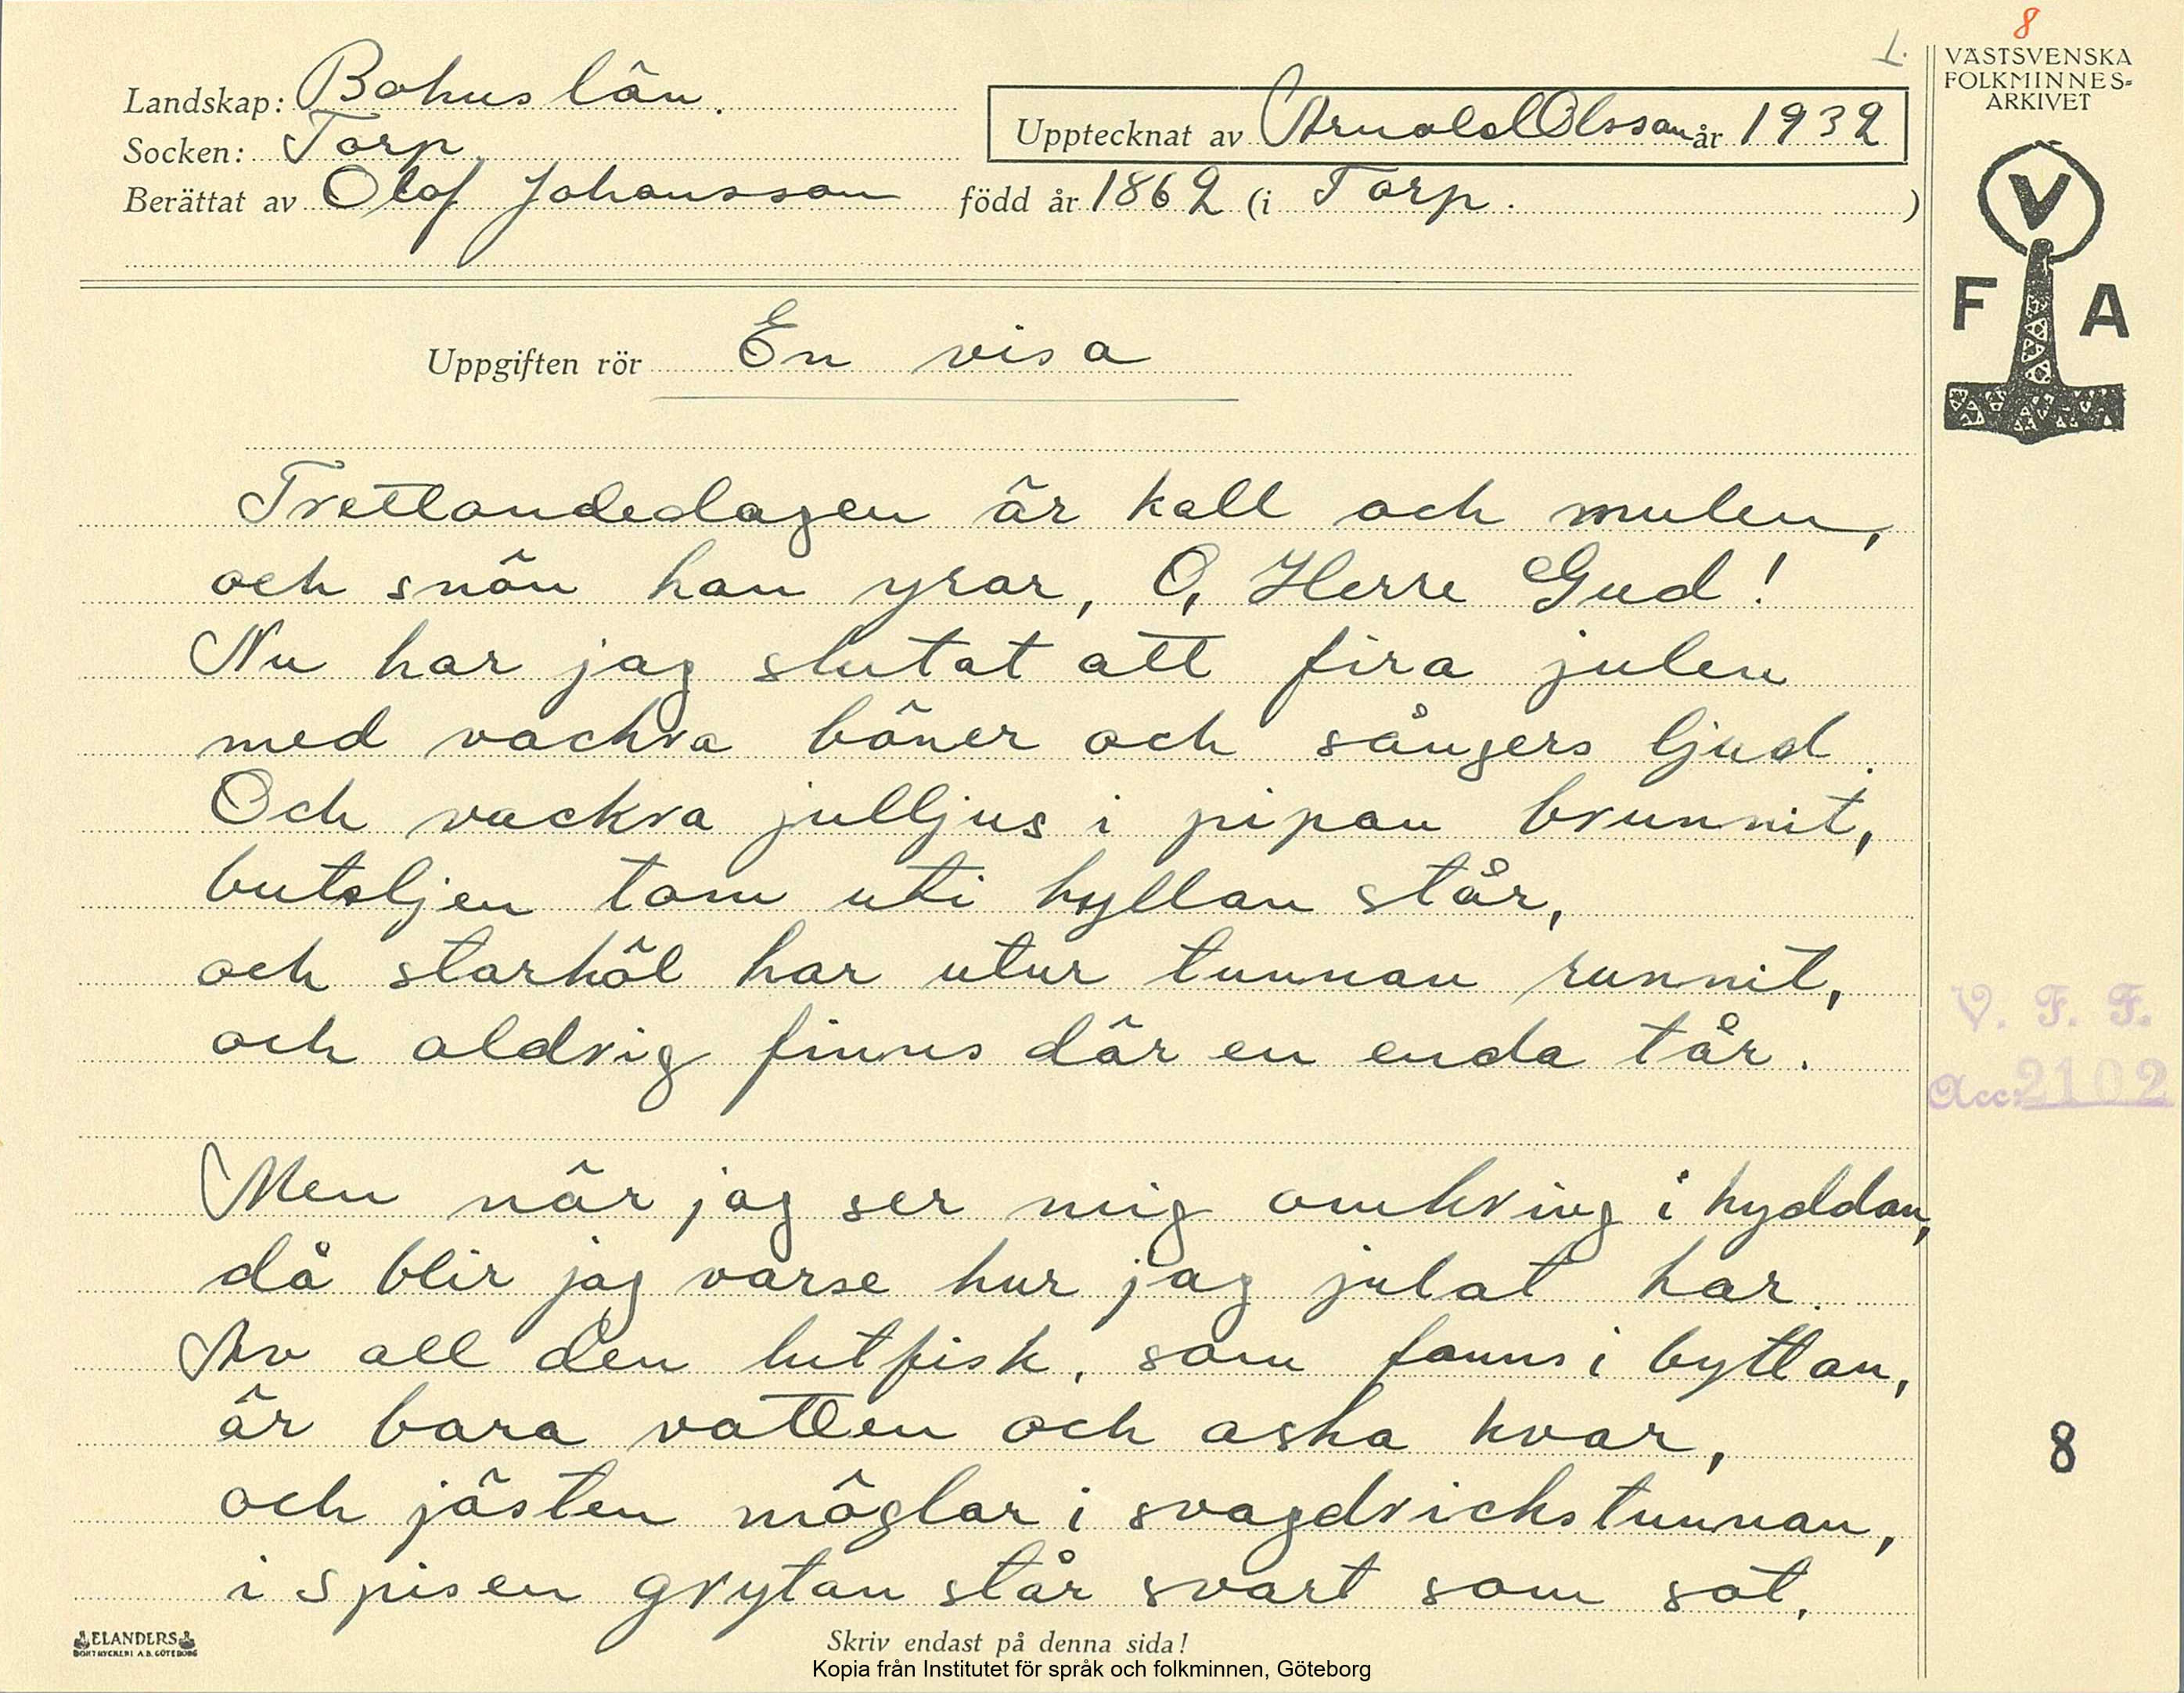 8
1.
VÄSTSVENSKA
FOLKMINNES=
ARKIVET
Landskap: Bohuslän.
Upptecknat av Arnold Olsson år 1932
Socken: Torp
Berättat av Olof Johansson född år 1862 (i Torp. )
V
F A
Uppgiften rör En visa
Trettondedagen är kall och mulen,
och snön han yrar, O, Herre Gud!
Nu har jag slutat att fira julen
med vackra böner och sångers ljud.
Och vackra julljus i pipan brunnit,
buteljen tom uti hyllan står,
och starköl har utur tunnan runnit,
och aldrig finns där en enda tår.
V. F. F.
Acc: 2102
Men när jag ser mig omkring i hyddan,
då blir jag varse hur jag julat har.
Av all den lutfisk, som fanns i byttan,
är bara vatten och aska kvar,
8
och jästen möglar i svagdrickstunnan,
i spisen grytan står svart som sot.
ELANDERS
BOKTRYCKERI A.B. GÖTEBORG
Skriv endast på denna sida!
Kopia från Institutet för språk och folkminnen, Göteborg